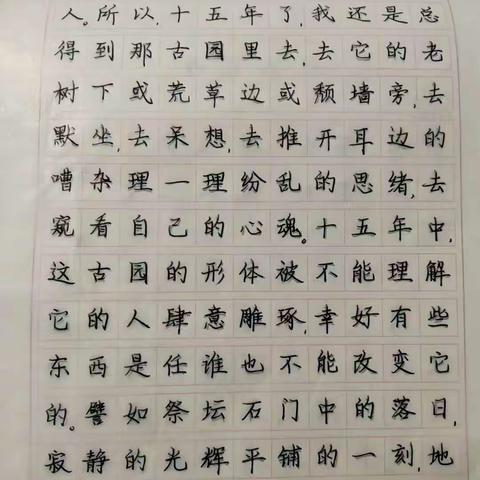 人。所以，十五年了，我还是总
得到那古园里去，去它的老
树下或荒草边或颓墙旁，去
默坐，去呆想，去推开耳边的
嘈杂理一理纷乱的思绪，去
窥看自己的心魂。十五年中，
这古园的形体被不能理解
它的人肆意雕琢，幸好有些
东西是任谁也不能改变它
的。譬如祭坛石门中的落日，
寂静的光辉平铺的一刻，地